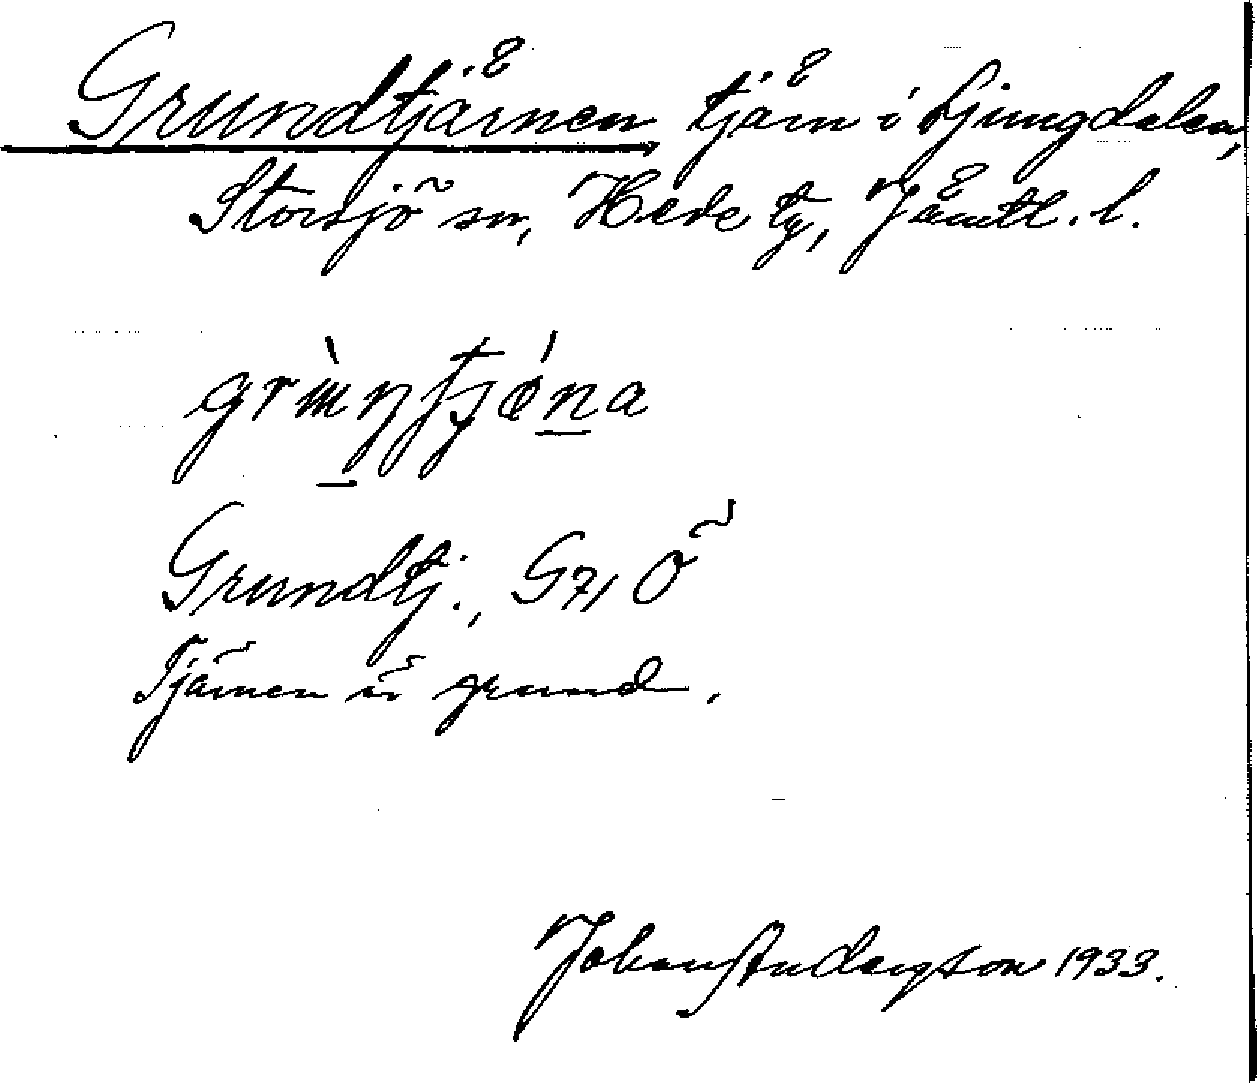 Grundtjärnen, tjärn i Ljungdalen,
Storsjö sn, Hede tg, Jämtl. l.
Grundtj., G7, Ö
Tjärnen är grund.
Johan Anderzson 1933.